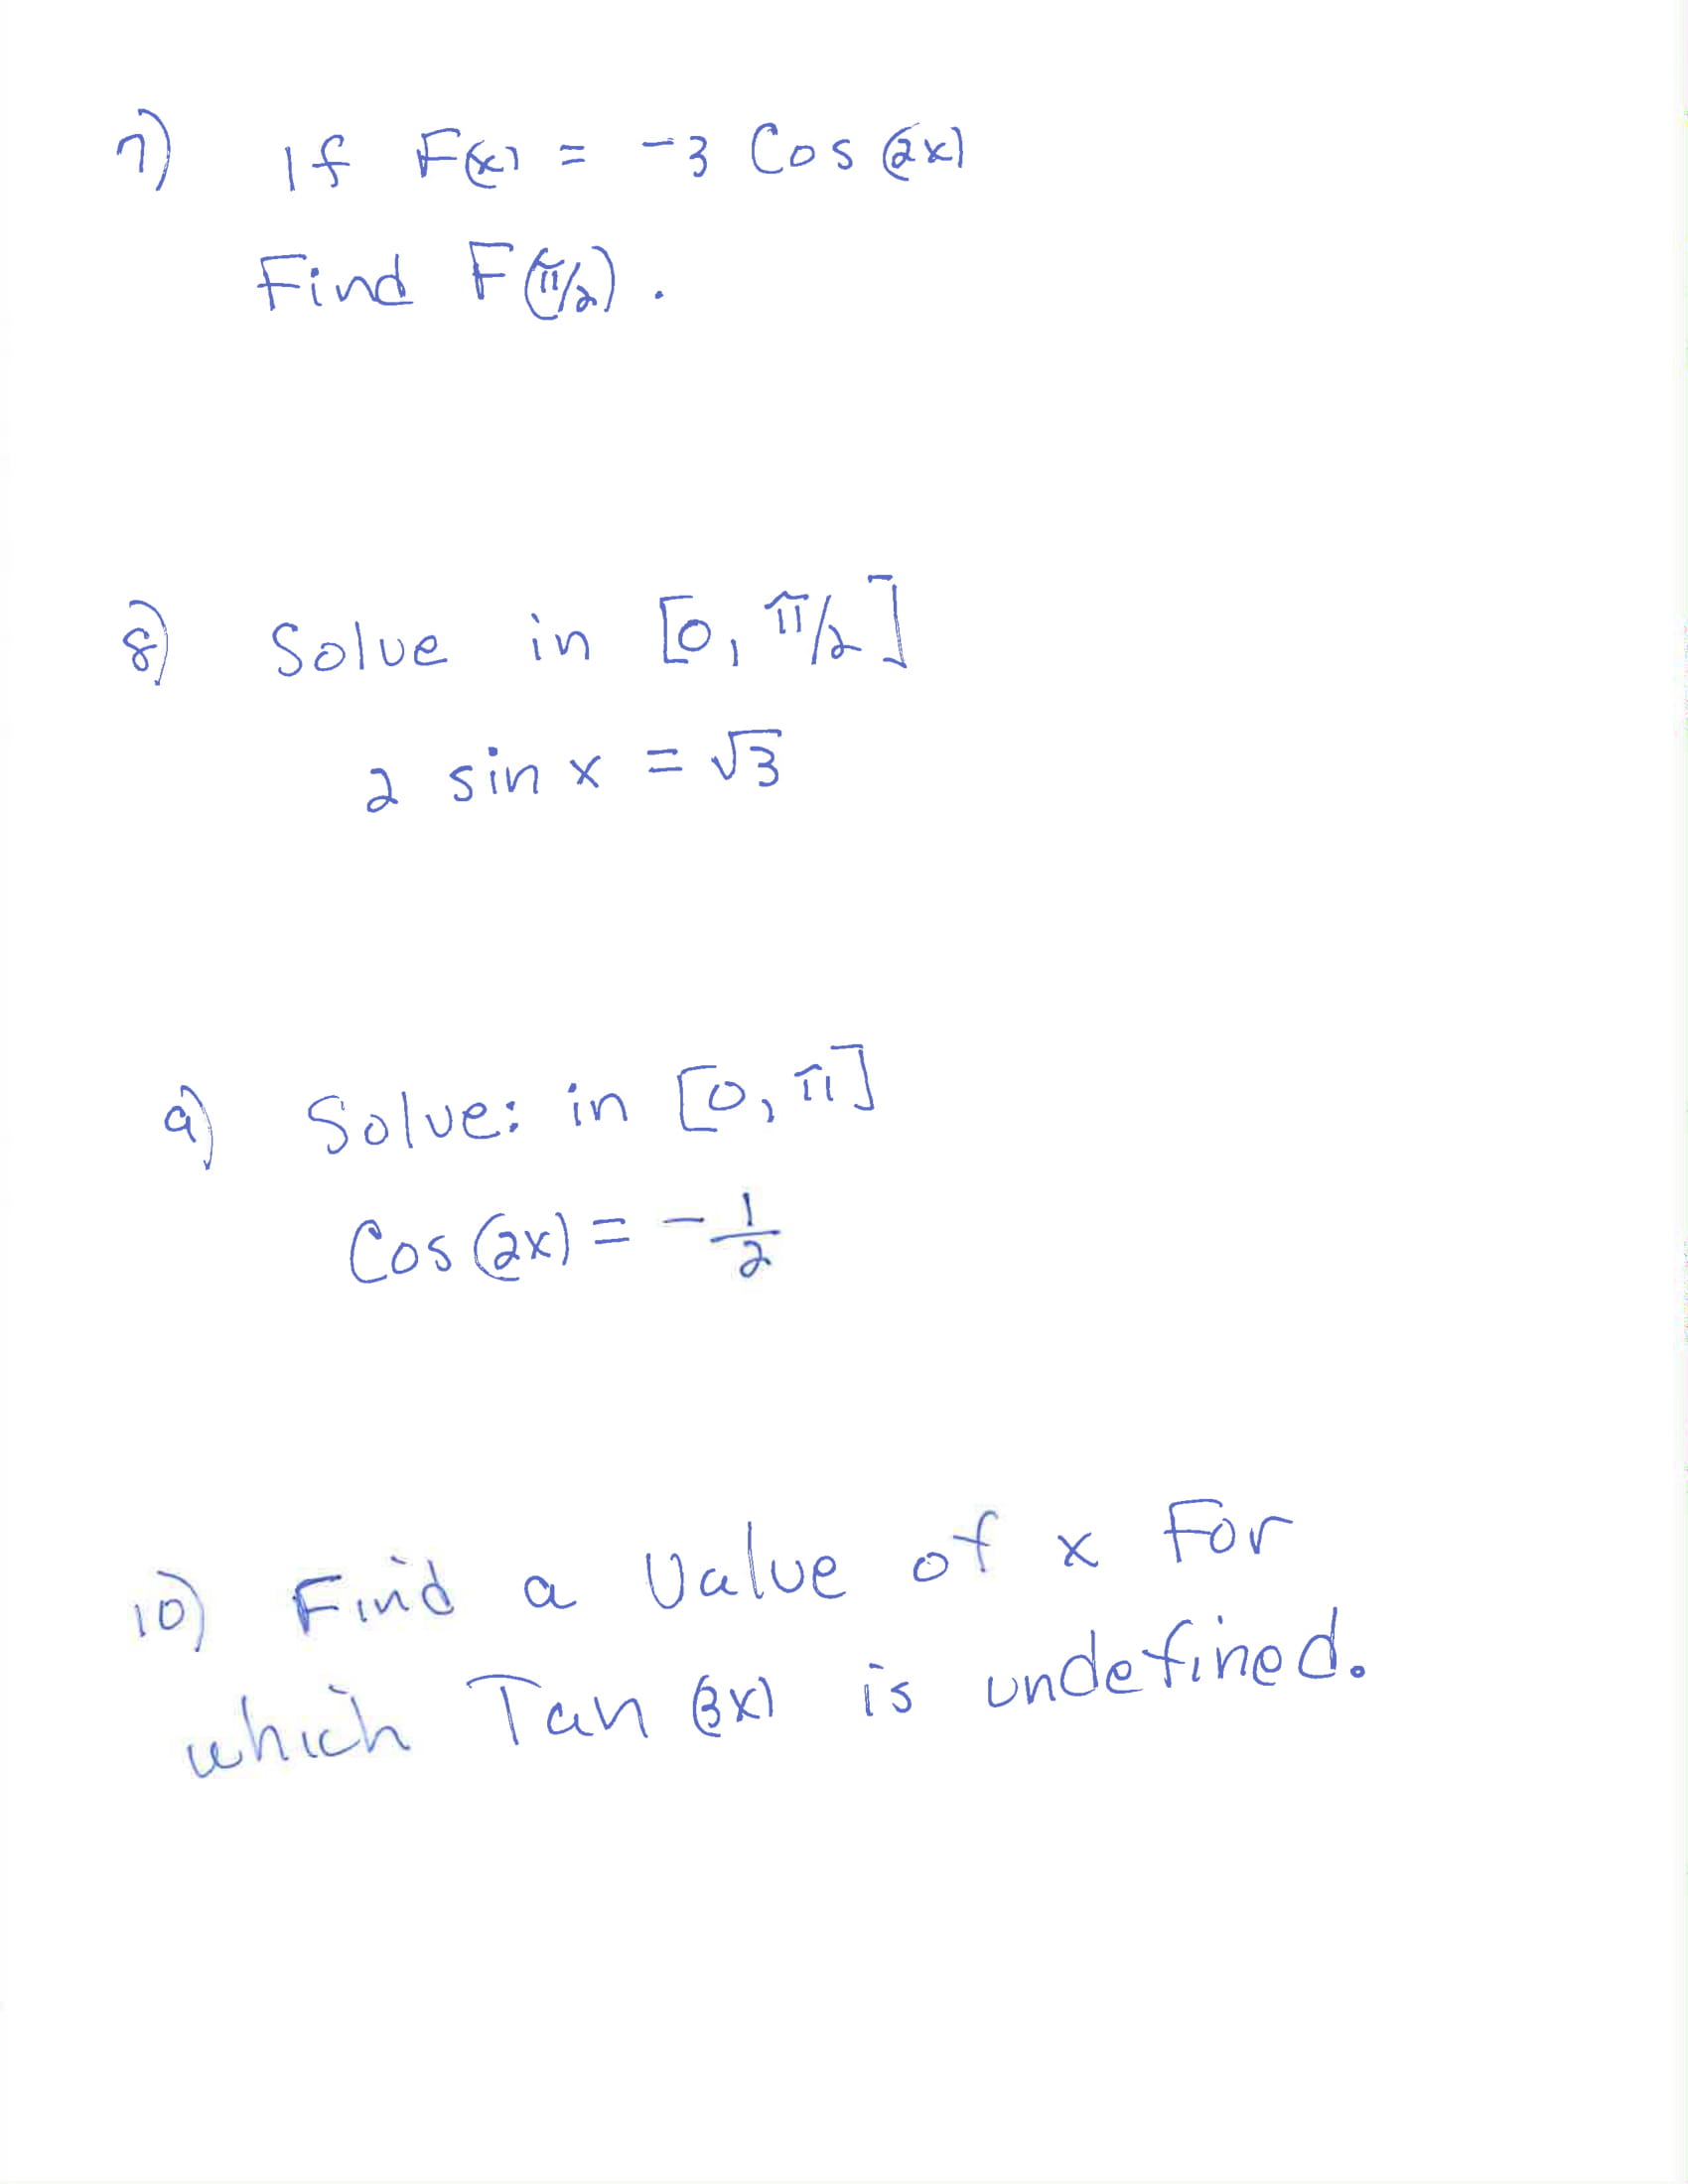 7) If F(x) = -3 Cos (2x)
Find F(π/2).
8) Solve in [0, π/2]
2 sin x = √3
9) Solve: in [0, π]
Cos (2x) = - 1/2
10) Find a Value of x For
which Tan (3x) is undefined.